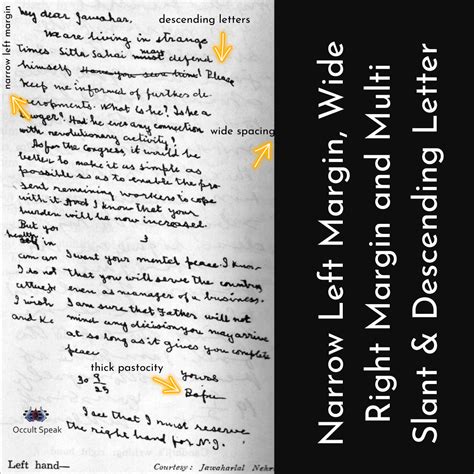 narrow left margin
descending letters
My dear Jawahar,
We are living in strange
times. Sitla Sahai may must defend
himself. Have you seen him? Please
keep me informed of further de-
velopments. What is he? Is he a
Had he ever any connection
with revolutionary activity?
wide spacing
As for the Congress, it would be
better to make it as simple as
possible so as to enable the pre-
sent remaining workers to cope
with it. And I know that your
burden will be now increased.
But you
health
self in
3
I want your mental peace. I know
can
that you will serve the country
I do not
even as manager of a business.
I am sure that Father will not
I wish
mind any decision you may arrive
and
at so long as it gives you complete
peace
thick pastocity
Yours
Bapu
30 9
25
I see that I must reserve
the right hand for N.J.
Occult Speak
Left hand—
Courtesy: Jawaharlal Nehr
Narrow Left Margin, Wide
Right Margin and Multi
Slant & Descending Letter